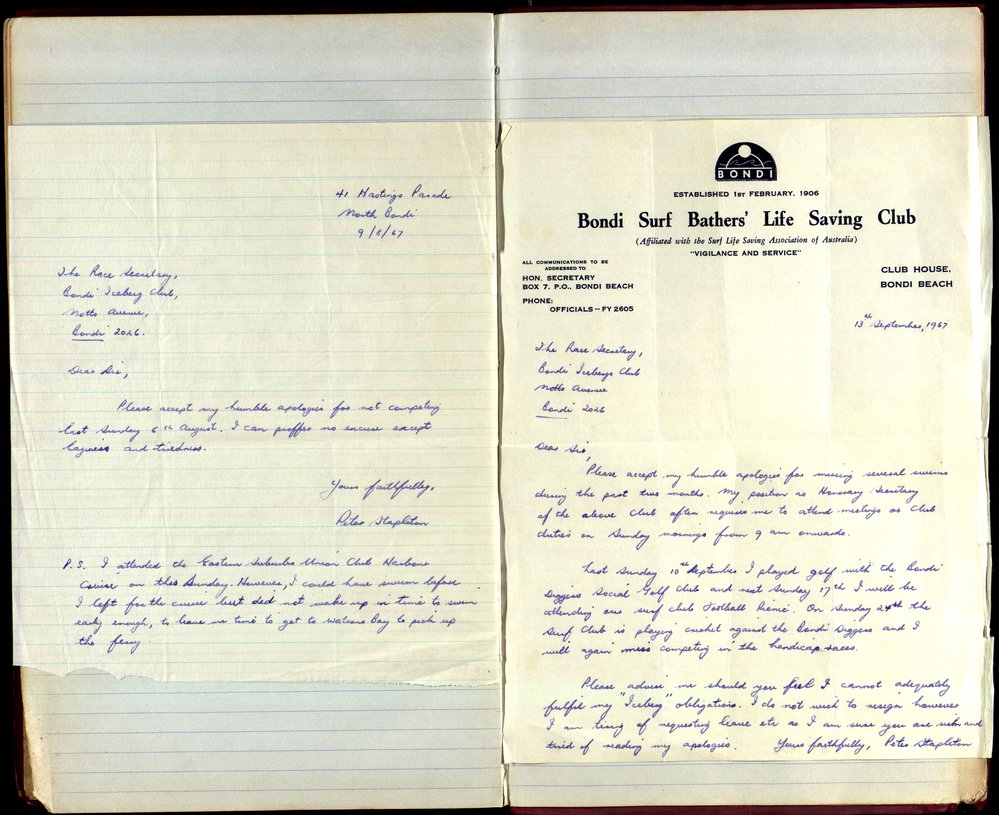 41 Hastings Parade
North Bondi
9/8/67
The Race Secretary,
Bondi Iceberg Club,
Notts Avenue,
Bondi 2026.
Dear Sir,
Please accept my humble apologies for not competing
last Sunday 6th August. I can proffer no excuse except
laziness and tiredness.
Yours faithfully,
Peter Stapleton
P.S. I attended the Eastern Suburbs Union Club Harbour
Cruise on this Sunday. However, I could have swum before
I left for the cruise but did not wake up in time to swim
early enough, to leave me time to get to Watsons Bay to pick up
the ferry
BONDI
ESTABLISHED 1ST FEBRUARY. 1906
Bondi Surf Bathers' Life Saving Club
(Affiliated with the Surf Life Saving Association of Australia)
"VIGILANCE AND SERVICE"
ALL COMMUNICATIONS TO BE
ADDRESSED TO
HON. SECRETARY
BOX 7. P.O., BONDI BEACH
PHONE:
OFFICIALS – FY 2605
CLUB HOUSE,
BONDI BEACH
13th September, 1967
The Race Secretary,
Bondi Icebergs Club
Notts Avenue
Bondi 2026
Dear Sir,
Please accept my humble apologies for missing several swims
during the past two months. My position as Honorary Secretary
of the above Club often requires me to attend meetings or Club
duties on Sunday mornings from 9 am onwards.
Last Sunday 10th September I played golf with the Bondi
Diggers Social Golf Club and next Sunday 17th I will be
attending our surf club Football Picnic. On Sunday 24th the
Surf Club is playing cricket against the Bondi Diggers and I
will again miss competing in the handicap races.
Please advise me should you feel I cannot adequately
fulfil my "Iceberg" obligations. I do not wish to resign however
I am tiring of requesting leave etc as I am sure you are sick and
tired of reading my apologies. Yours faithfully, Peter Stapleton